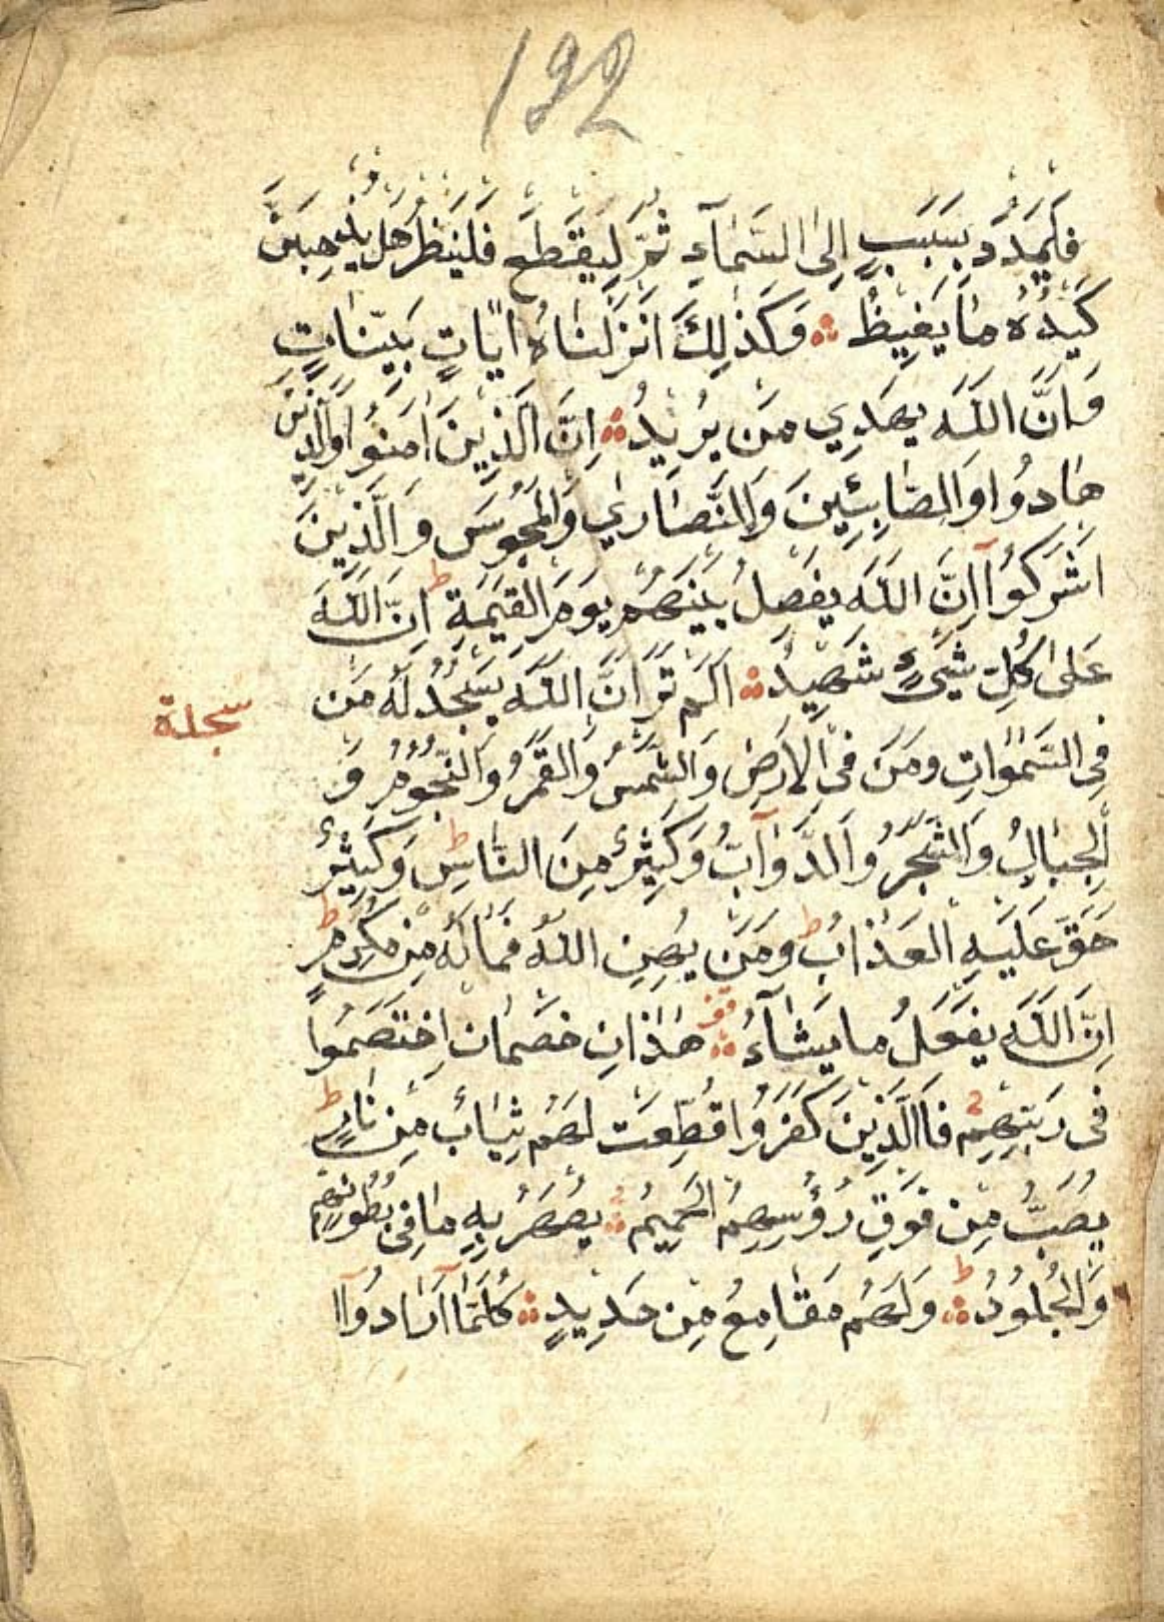 192
فَلْيَمْدُدْ بِسَبَبٍ اِلَى السَّمَآءِ ثُمَّ لِيَقْطَعْ فَلْيَنْظُرْ هَلْ يُذْهِبَنَّ
كَيْدُهُ مَا يَغِيظُ ۞ وَكَذٰلِكَ اَنْزَلْنَاهُ اٰيَاتٍ بَيِّنَاتٍ
وَاَنَّ اللّٰهَ يَهْدِي مَنْ يُرِيدُ ۞ اِنَّ الَّذِينَ اٰمَنُوا وَالَّذِينَ
هَادُوا وَالصَّابِئِينَ وَالنَّصَارٰي وَالْمَجُوسَ وَالَّذِينَ
اَشْرَكُوآ اِنَّ اللّٰهَ يَفْصِلُ بَيْنَهُمْ يَوْمَ الْقِيٰمَةِ ط اِنَّ اللّٰهَ
عَلٰى كُلِّ شَيْءٍ شَهِيدٌ ۞ اَلَمْ تَرَ اَنَّ اللّٰهَ يَسْجُدُ لَهُ مَنْ
سجدة
فِي السَّمٰوَاتِ وَمَنْ فِي الْاَرْضِ وَالشَّمْسُ وَالْقَمَرُ وَالنُّجُومُ وَ
الْجِبَالُ وَالشَّجَرُ وَالدَّوَآبُّ وَكَثِيرٌ مِنَ النَّاسِ ط وَكَثِيرٌ
حَقَّ عَلَيْهِ الْعَذَابُ ط وَمَنْ يُهِنِ اللّٰهُ فَمَا لَهُ مِنْ مُكْرِمٍ ط
اِنَّ اللّٰهَ يَفْعَلُ مَا يَشَآءُ ۞ هٰذَانِ خَصْمَانِ اخْتَصَمُوا
فِي رَبِّهِمْ فَالَّذِينَ كَفَرُوا قُطِّعَتْ لَهُمْ ثِيَابٌ مِنْ نَارٍ ط
يُصَبُّ مِنْ فَوْقِ رُؤُسِهِمُ الْحَمِيمُ ۞ يُصْهَرُ بِهِ مَا فِي بُطُونِهِمْ
وَالْجُلُودُ ط ۞ وَلَهُمْ مَقَامِعُ مِنْ حَدِيدٍ ۞ كُلَّمَآ اَرَادُوآ